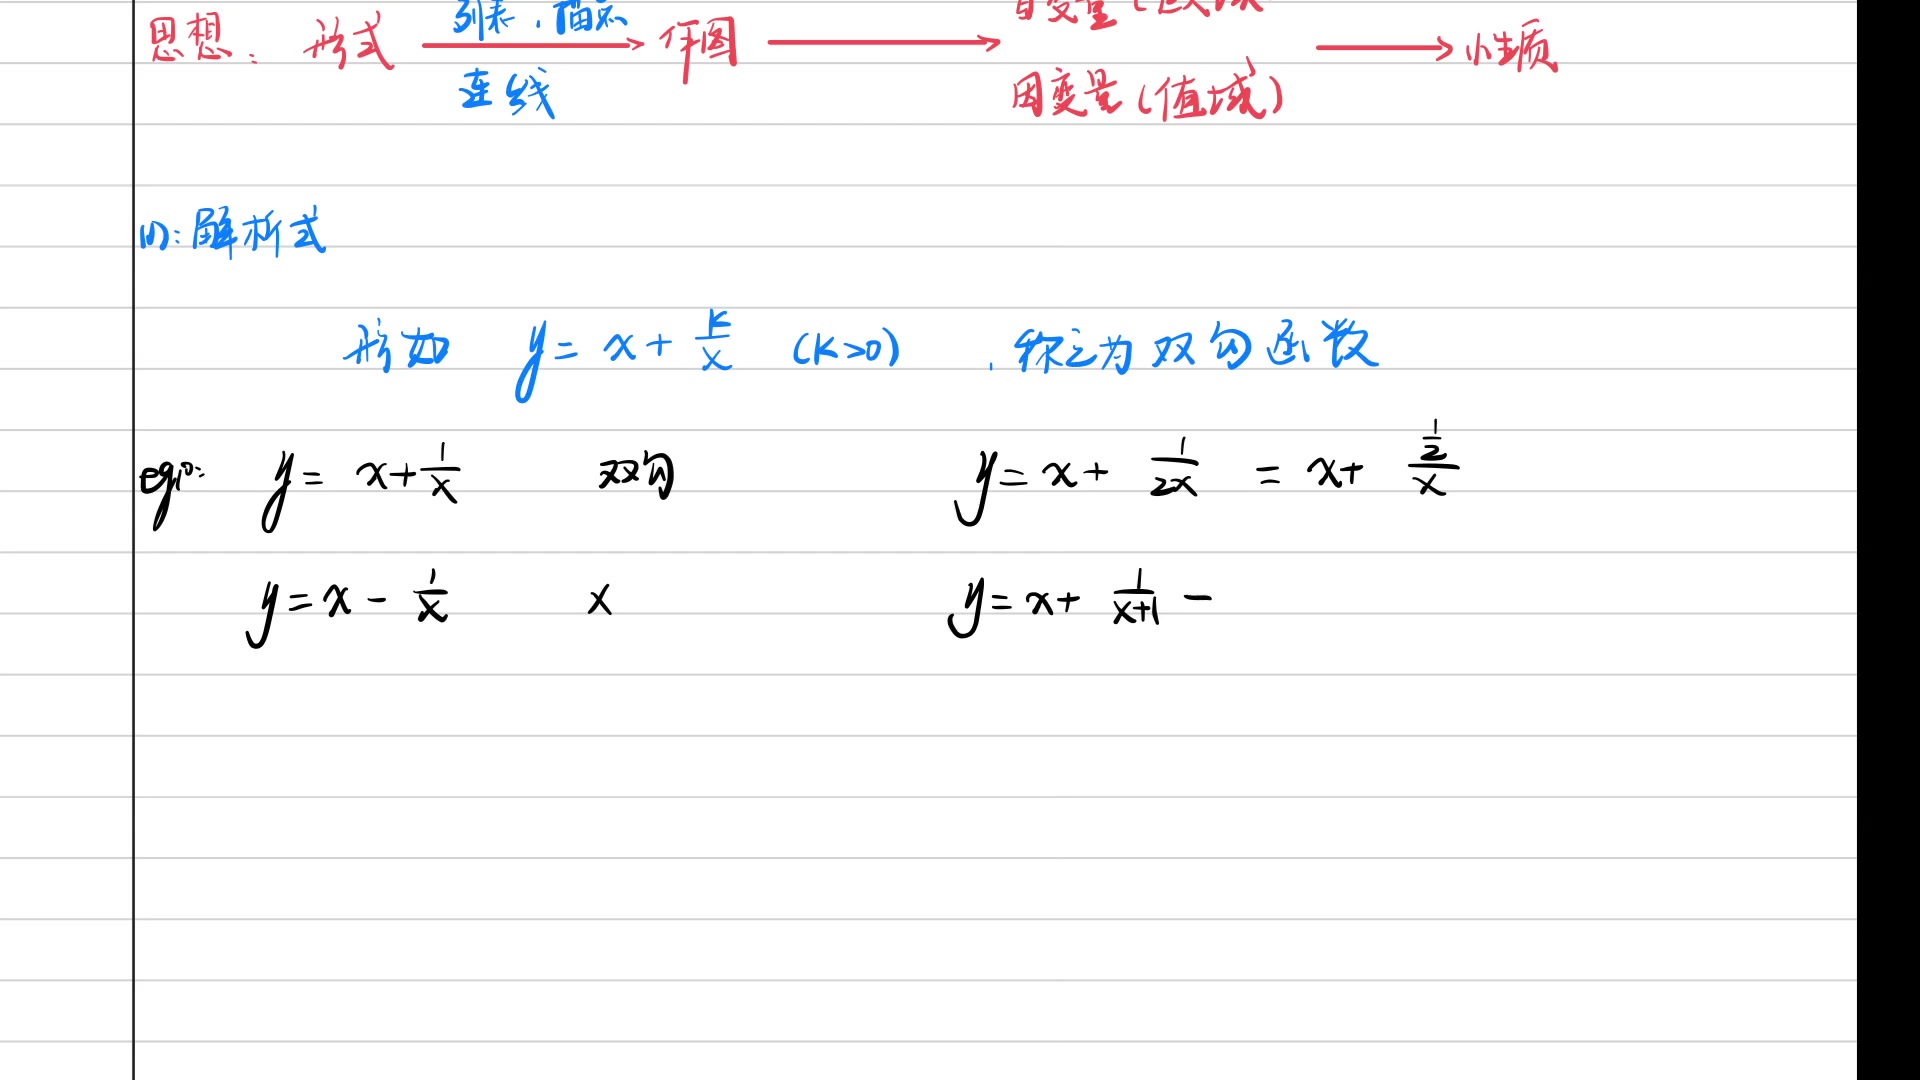 思想: 形式 列表,描点 连线 作图 自变量(定义域 因变量(值域) 性质
(1): 解析式
形如 y = x + k/x (k>0) , 称之为双勾函数
eg1°: y = x + 1/x 双勾 y = x + 1/2x = x + 1/2/x
y = x - 1/x × y = x + 1/x+1 -